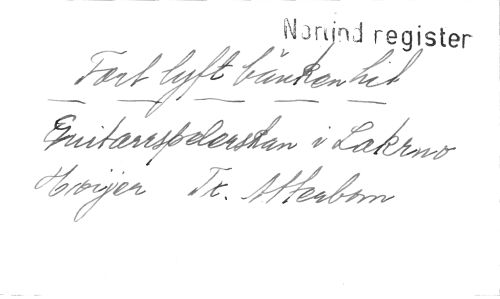 Norlind register
Fort lyft bänken hit
Guitarrspelerskan i Lakrno
Höijer Tx. Atterbom